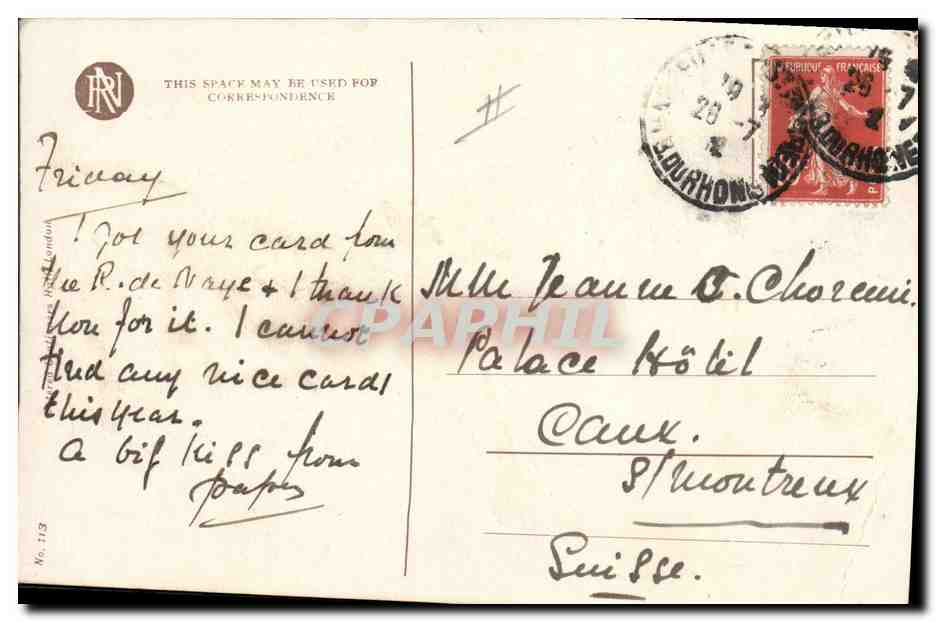 RN
THIS SPACE MAY BE USED FOR
CORRESPONDENCE
Friday
I got your card from
the R. de Naye & I thank
you for it. I cannot
find any nice cards
this year.
A big kiss from
papa
Mlle Jeanne C. Choremi.
Palace Hôtel
Caux.
s/montreux
Suisse.
REPUBLIQUE FRANÇAISE
26 -7
12
B. DU RHONE
No. 113
London
CPAPHIL